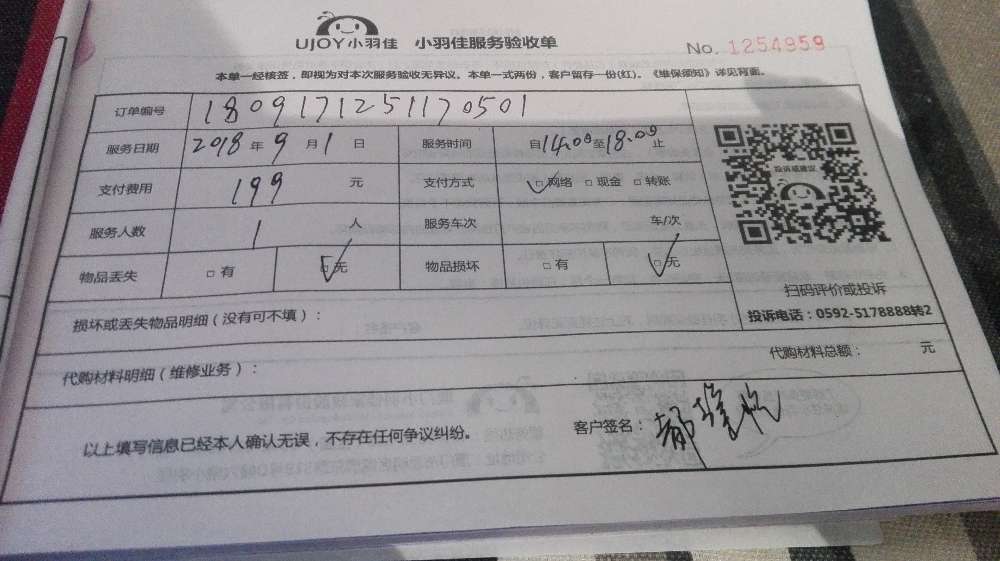 UJOY小羽佳 小羽佳服务验收单
No. 1254959
本单一经核签，即视为对本次服务验收无异议。本单一式两份，客户留存一份(红)。《维保须知》详见背面。
订单编号 1809171251170501
服务日期 2018年9月1日 服务时间 自14:00至18:00止
支付费用 199元 支付方式 □网络 □现金 □转账
服务人数 1人 服务车次 车/次
物品丢失 □有 □无 物品损坏 □有 □无
投诉或建议
扫码评价或投诉
投诉电话：0592-5178888转2
损坏或丢失物品明细（没有可不填）：
代购材料明细（维修业务）： 代购材料总额： 元
以上填写信息已经本人确认无误，不存在任何争议纠纷。 客户签名：